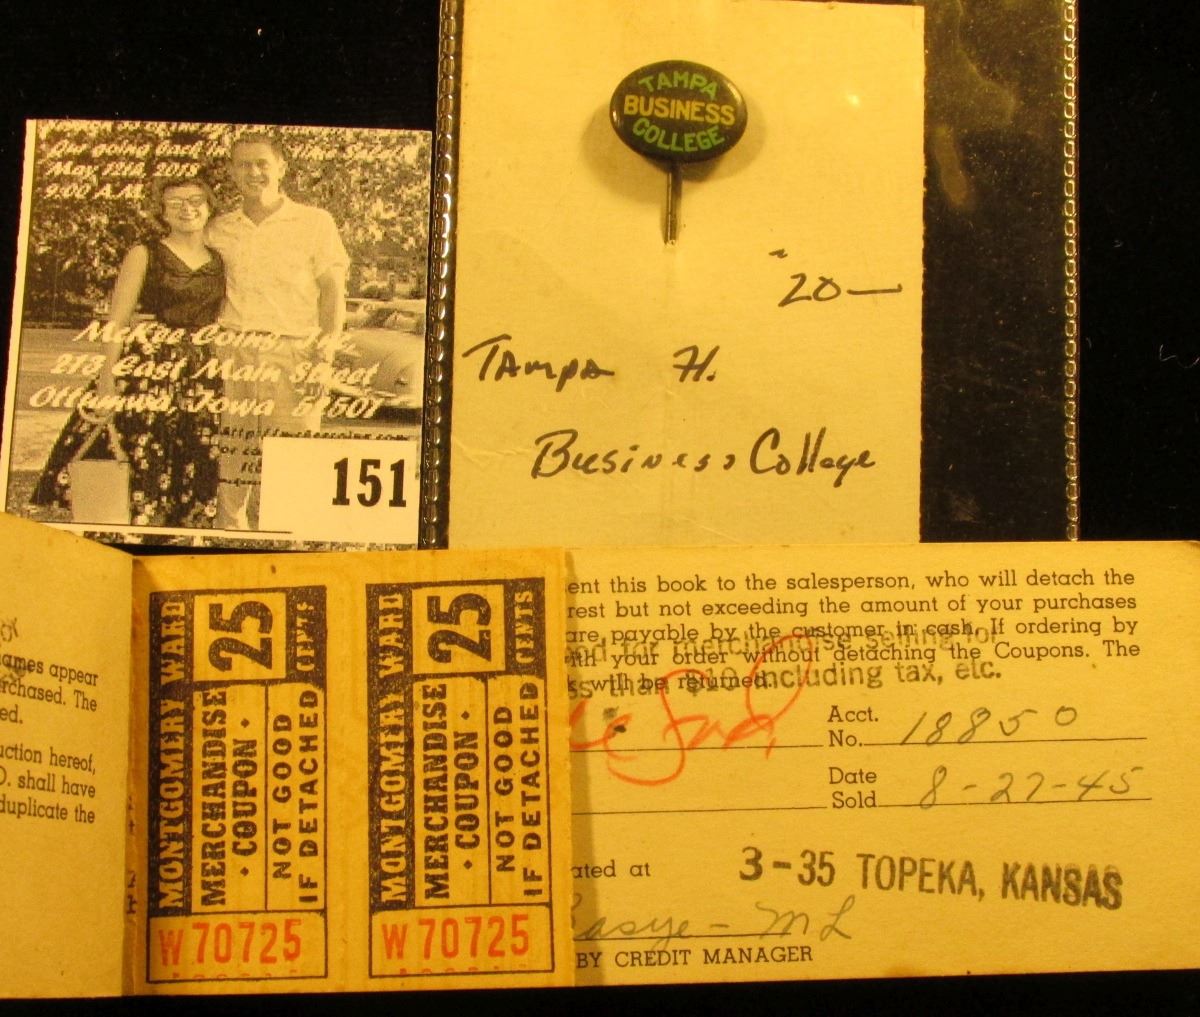 Our going back in
May 12th, 2018
9:00 A.M.
McKee Coins, Inc.
213 East Main Street
Ottumwa, Iowa 52501
151
TAMPA
BUSINESS
COLLEGE
"20—
TAMPA H.
Business College
ames appear
rchased. The
ed.
uction hereof,
O. shall have
duplicate the
MONTGOMERY WARD
25 CENTS
MERCHANDISE
· COUPON ·
NOT GOOD
IF DETACHED
W70725
MONTGOMERY WARD
25 CENTS
MERCHANDISE
· COUPON ·
NOT GOOD
IF DETACHED
W70725
ent this book to the salesperson, who will detach the
rest but not exceeding the amount of your purchases
are payable by the customer in cash. If ordering by
ith your order without detaching the Coupons. The
k will be returned.
od for merchandise selling for
ss than $10 including tax, etc.
Acct.
No. 18850
Date
Sold 8-27-45
ated at
3-35 TOPEKA, KANSAS
Basye - ML
BY CREDIT MANAGER